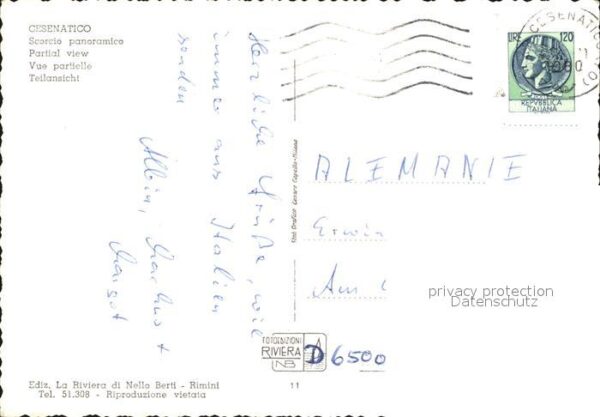 CESENATICO
Scorcio panoramico
Partial view
Vue partielle
Teilansicht
Herzliche Grüße, wie
immer aus Italien
senden
Albin, Markus +
Margot
CESENATICO
LIRE 120
REPUBBLICA
ITALIANA
ALEMANIE
Erwin
Am
privacy protection
Datenschutz
D 6500
FOTOEDIZIONI
RIVIERA
NB
11
Ediz. La Riviera di Nello Berti - Rimini
Tel. 51.308 - Riproduzione vietata